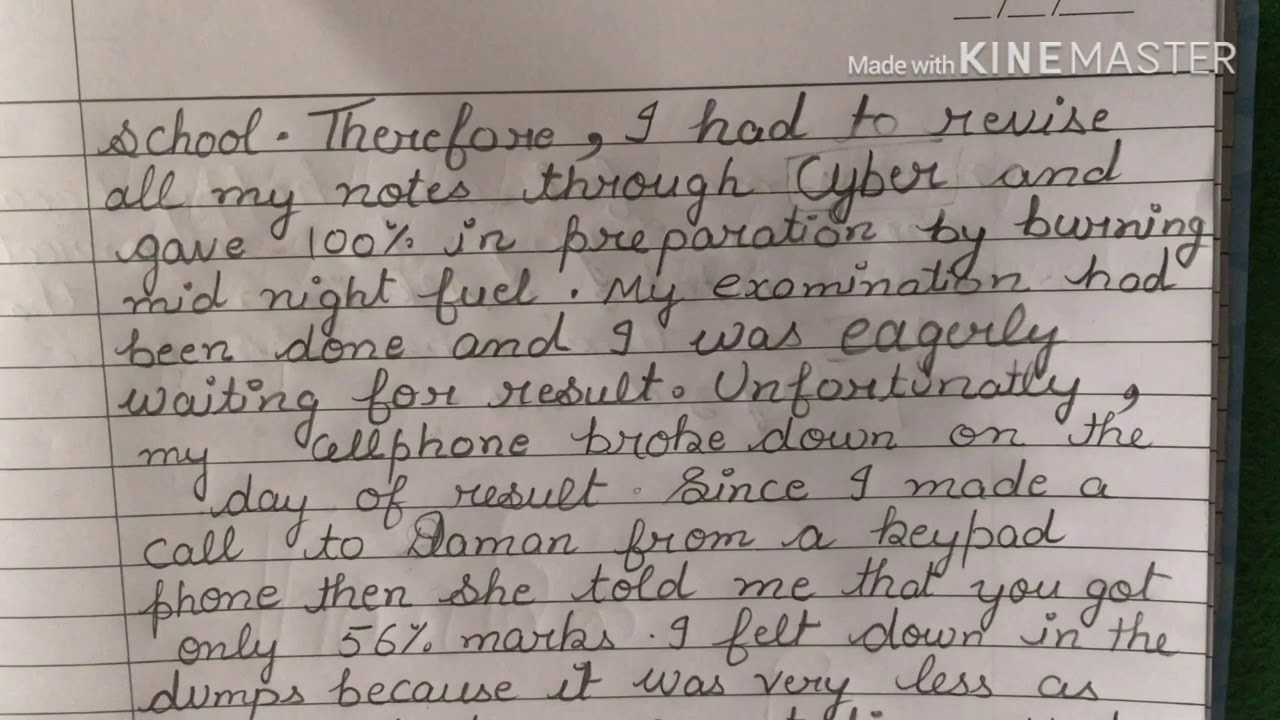 __/__/____
Made with KINEMASTER
school. Therefore, I had to revise
all my notes through Cyber and
gave 100% in preparation by burning
mid night fuel. My examination had
been done and I was eagerly
waiting for result. Unfortunatly,
my cellphone broke down on the
day of result. Since I made a
call to Daman from a keypad
phone then she told me that you got
only 56% marks. I felt down in the
dumps because it was very less as